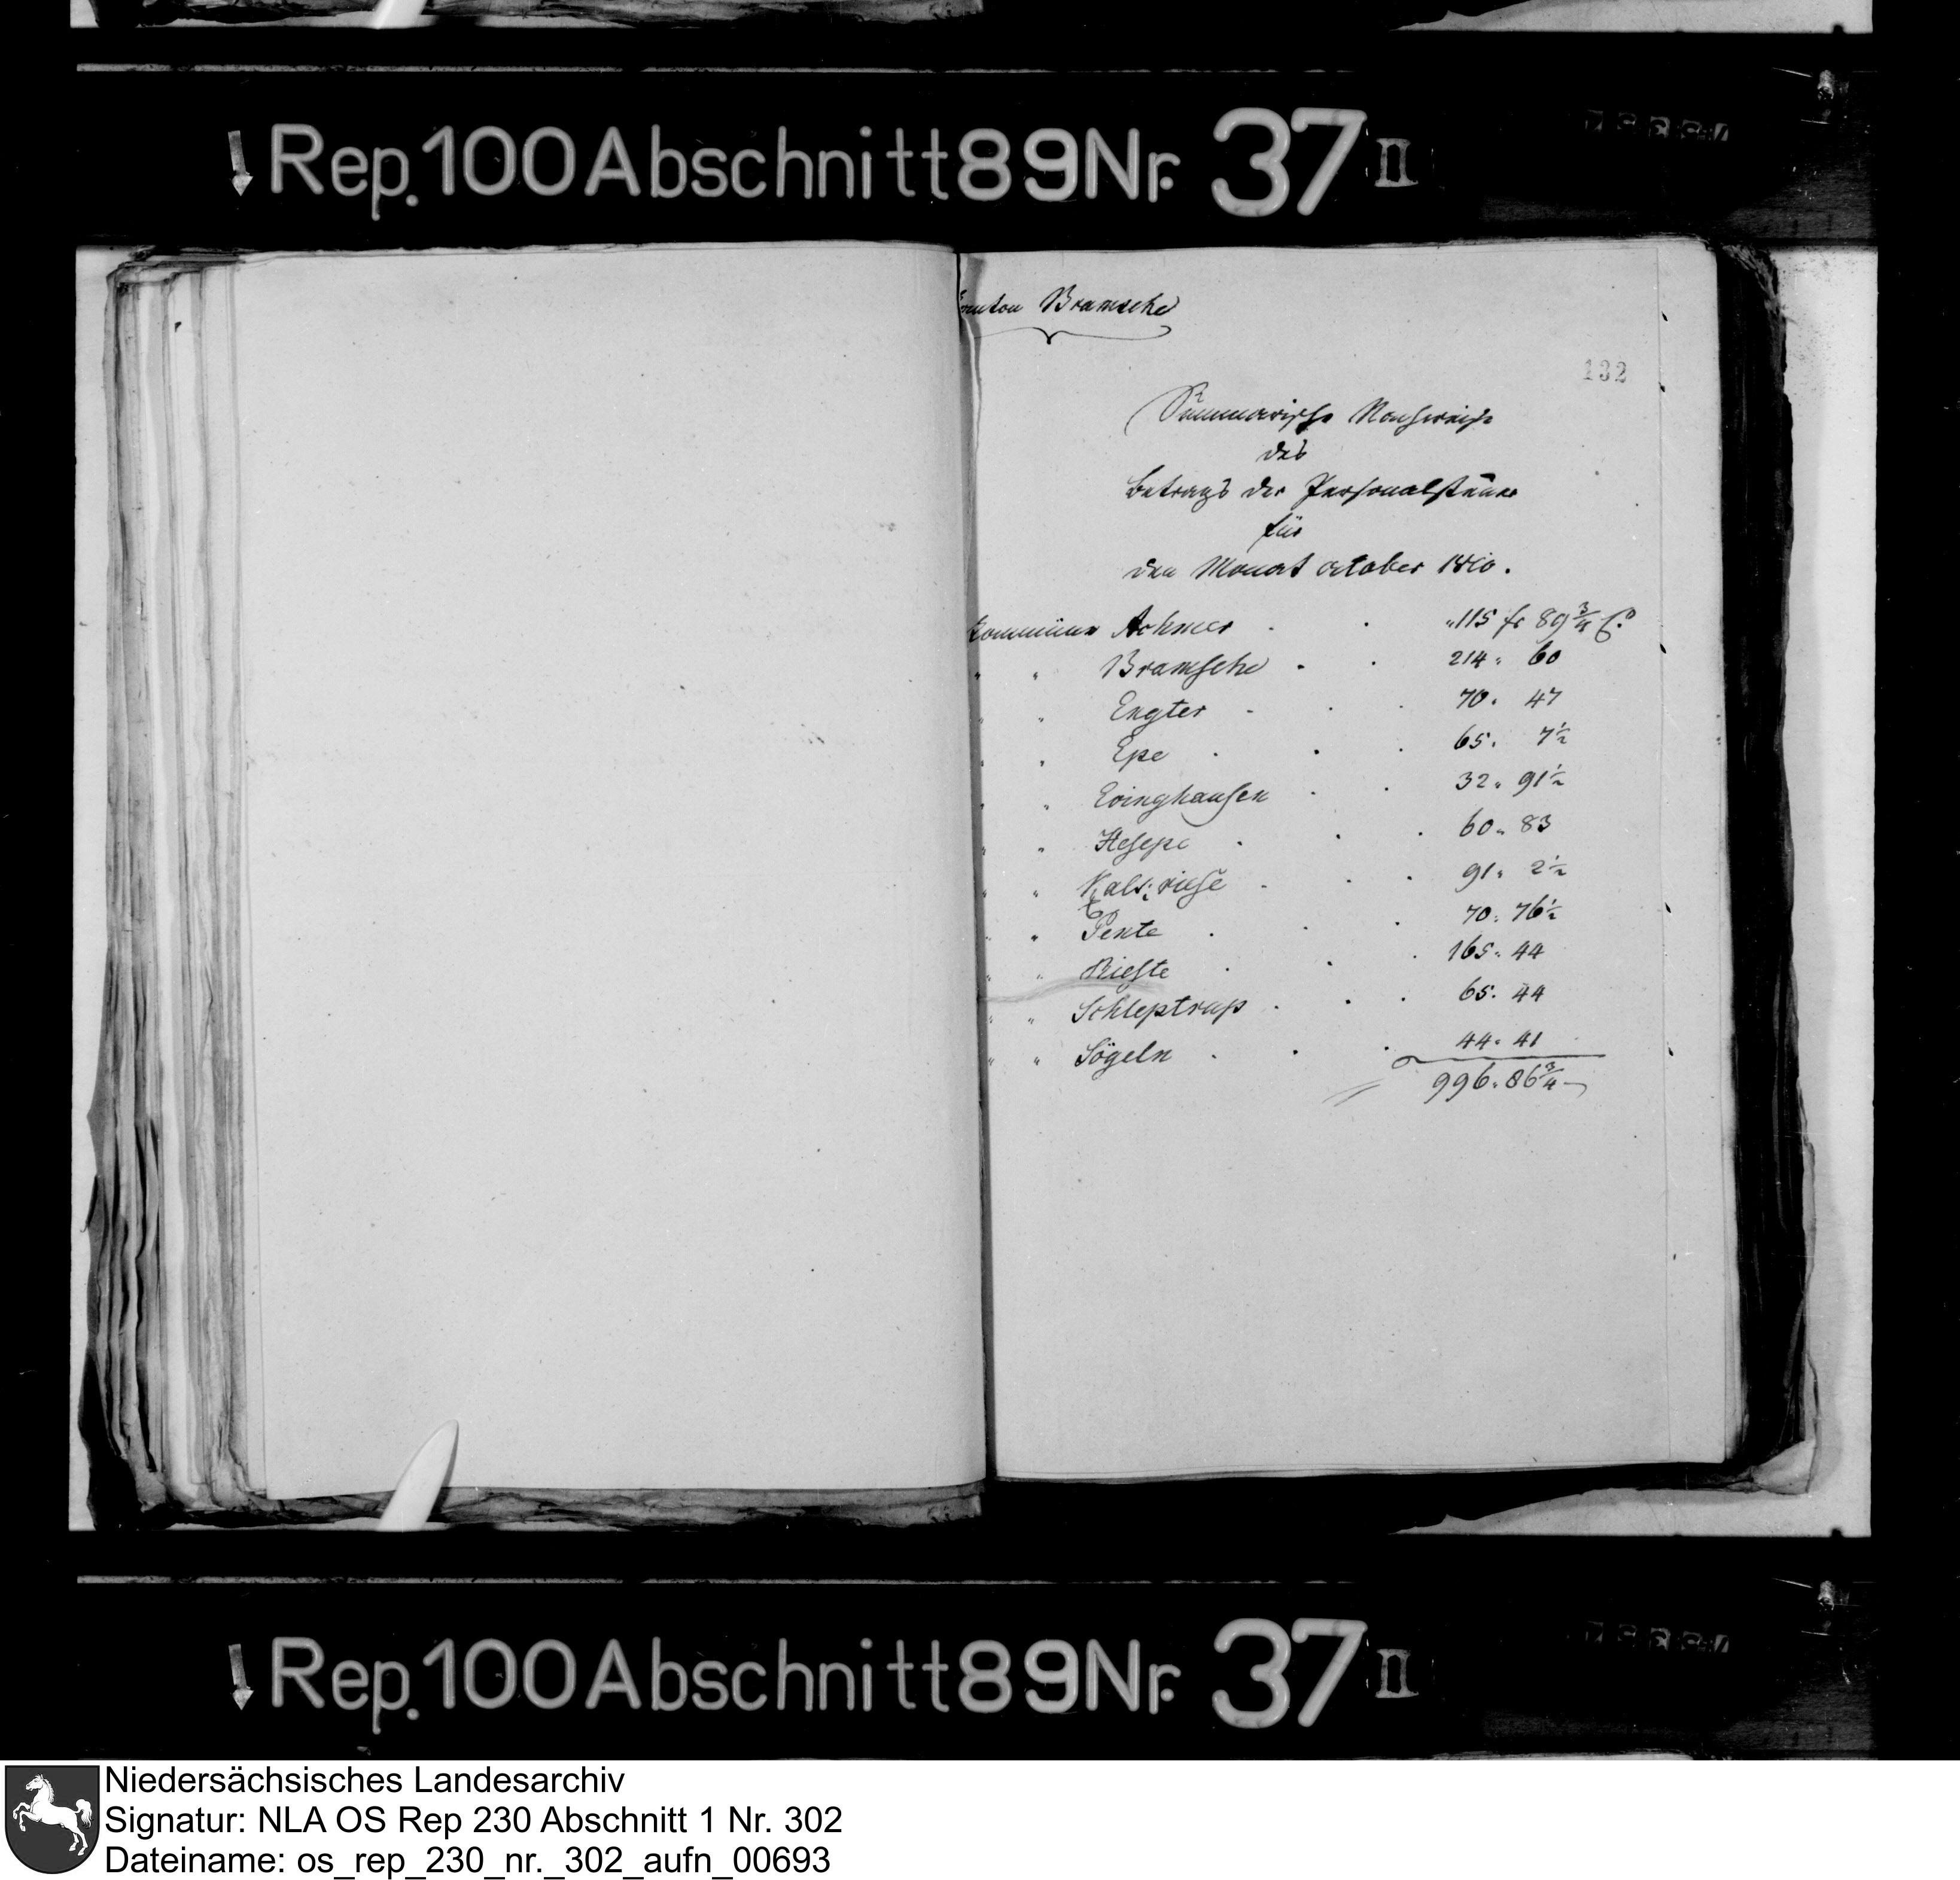 Rep. 100 Abschnitt 89 Nr. 37 II
Canton Bramsche
132
Summarische Nachweise
des
Betrags der Personalsteuer
für
den Monat October 1810.
Commüne Achmer . . " 115 fr 89 3/4 C.
" " Bramsche . . 214 " 60
" " Engter . . . 70 " 47
" " Epe . . . 65 " 7 1/2
" " Evinghausen . . 32 " 91 1/2
" " Hesepe . . . 60 " 83
" " Kalkriese . . . 91 " 2 1/2
" " Pente . . . 70 " 76 1/2
" " Rieste . . . 165 " 44
" " Schleptrup . . . 65 " 44
" " Sögeln . . . 44 " 41
996 " 86 3/4
Rep. 100 Abschnitt 89 Nr. 37 II
Niedersächsisches Landesarchiv
Signatur: NLA OS Rep 230 Abschnitt 1 Nr. 302
Dateiname: os_rep_230_nr._302_aufn_00693